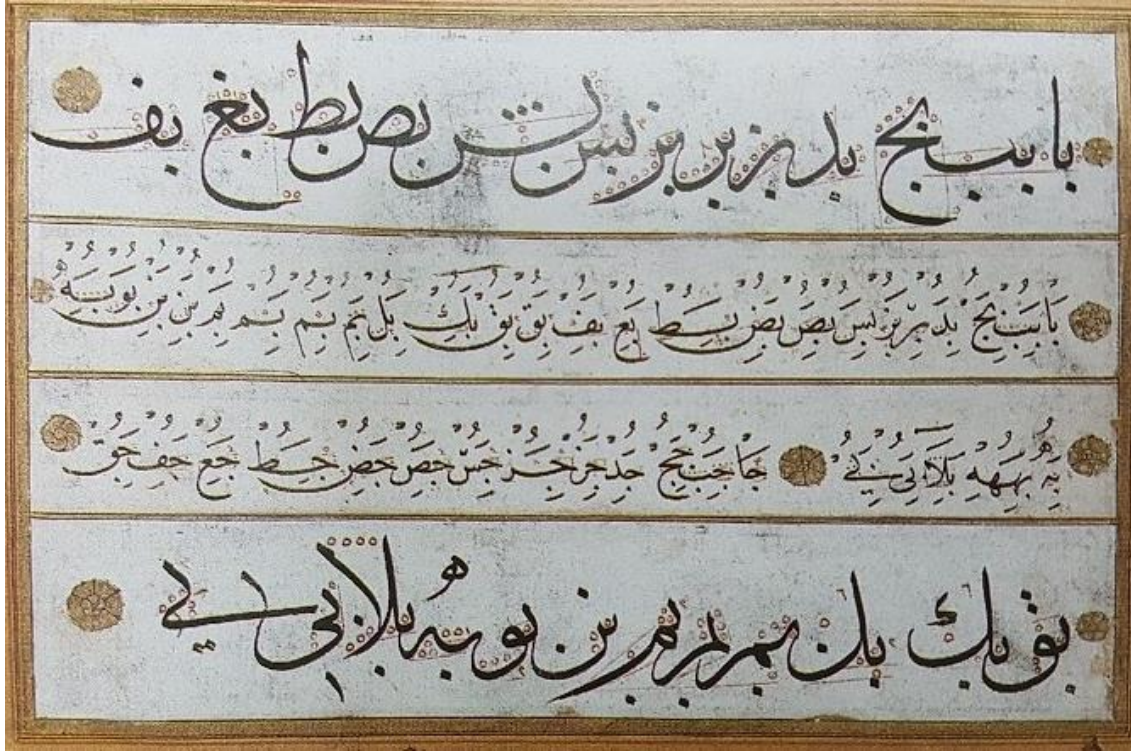 با بب بج بد بر بر بر بس بس بص بط بع بف
با بب بج بد بر بر بس بص بض بط بع بف بق بق بك بل بم بم بم بم بن بن بو به
به بهه بلا بي بي جا جب جج جد جر جز جس جص جض جط جع جف جق
بق بك بل بم بم بم بن بو به بلا بي بي